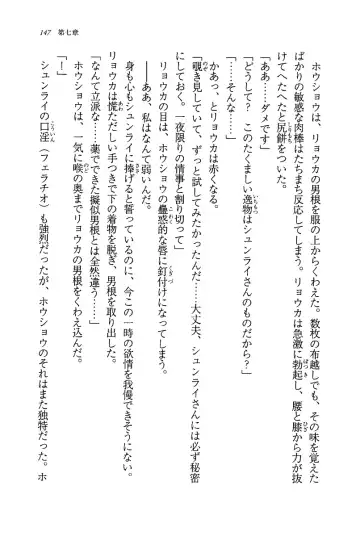 147　第七章
ホウショウは、リョウカの男根を服の上からくわえた。数枚の布越しでも、その味を覚えた
ばかりの敏感な肉棒はたちまち反応してしまう。リョウカは急激に勃起し、腰と膝から力が抜
けてへたへたと尻餅をついた。
「ああ……ダメです」
「どうして？　このたくましい逸物はシュンライさんのものだから？」
「……そんな……」
かあっ、とリョウカは赤くなる。
「覗き見していて、ずっと試してみたかったんだ……大丈夫、シュンライさんには必ず秘密
にしておく。一夜限りの情事と割り切って」
リョウカの目は、ホウショウの蠱惑的な唇に釘付けになってしまう。
――ああ、私はなんて弱いんだ。
身も心もシュンライに捧げると誓っているのに、今この一時の欲情を我慢できそうにない。
リョウカは慌ただしい手つきで下の着物を脱ぎ、男根を取り出した。
「なんて立派な……薬でできた擬似男根とは全然違う……」
ホウショウは、一気に喉の奥までリョウカの男根をくわえ込んだ。
「！」
シュンライの口淫（フェラチオ）も強烈だったが、ホウショウのそれはまた独特だった。ホ